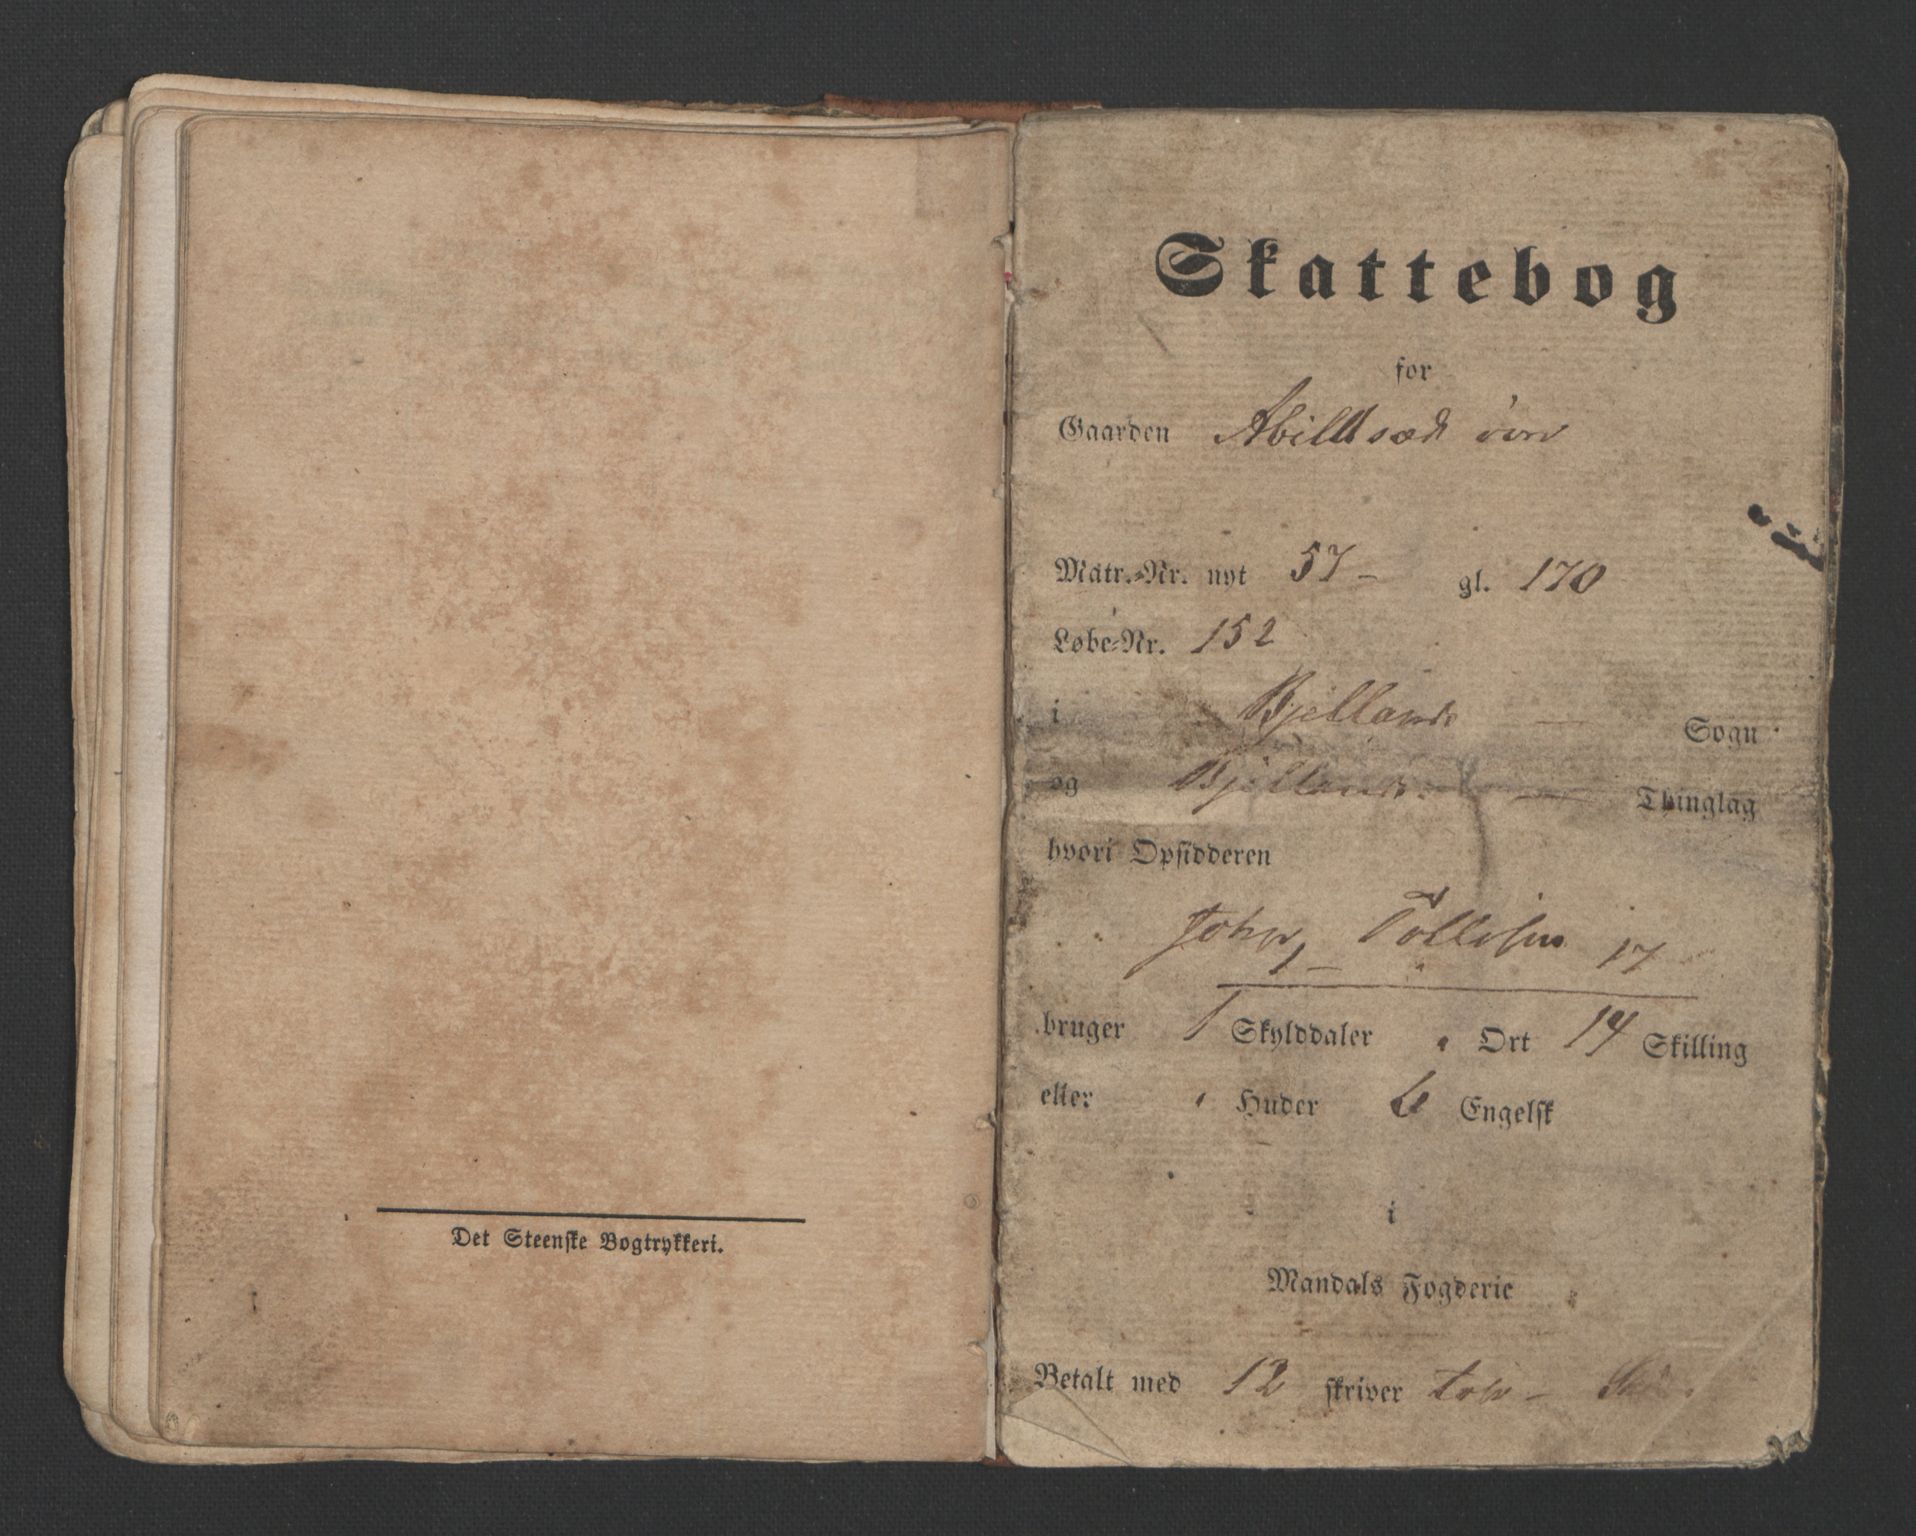 Det Steenske Bogtrykkeri.
Skattebog
for
Gaarden Abildsæd øvre
Matr.-Nr. nyt 57 – gl. 170
Løbe-Nr. 152
i Bjellands — Sogn
og Bjellands — Thinglag
hvori Opsidderen
John Tollefsen 17
bruger 1 Skylddaler " Ort 14 Skilling
eller " Huder 6 Engelsk
i
Mandals Fogderie
Betalt med 12 skriver tolv – Sk.